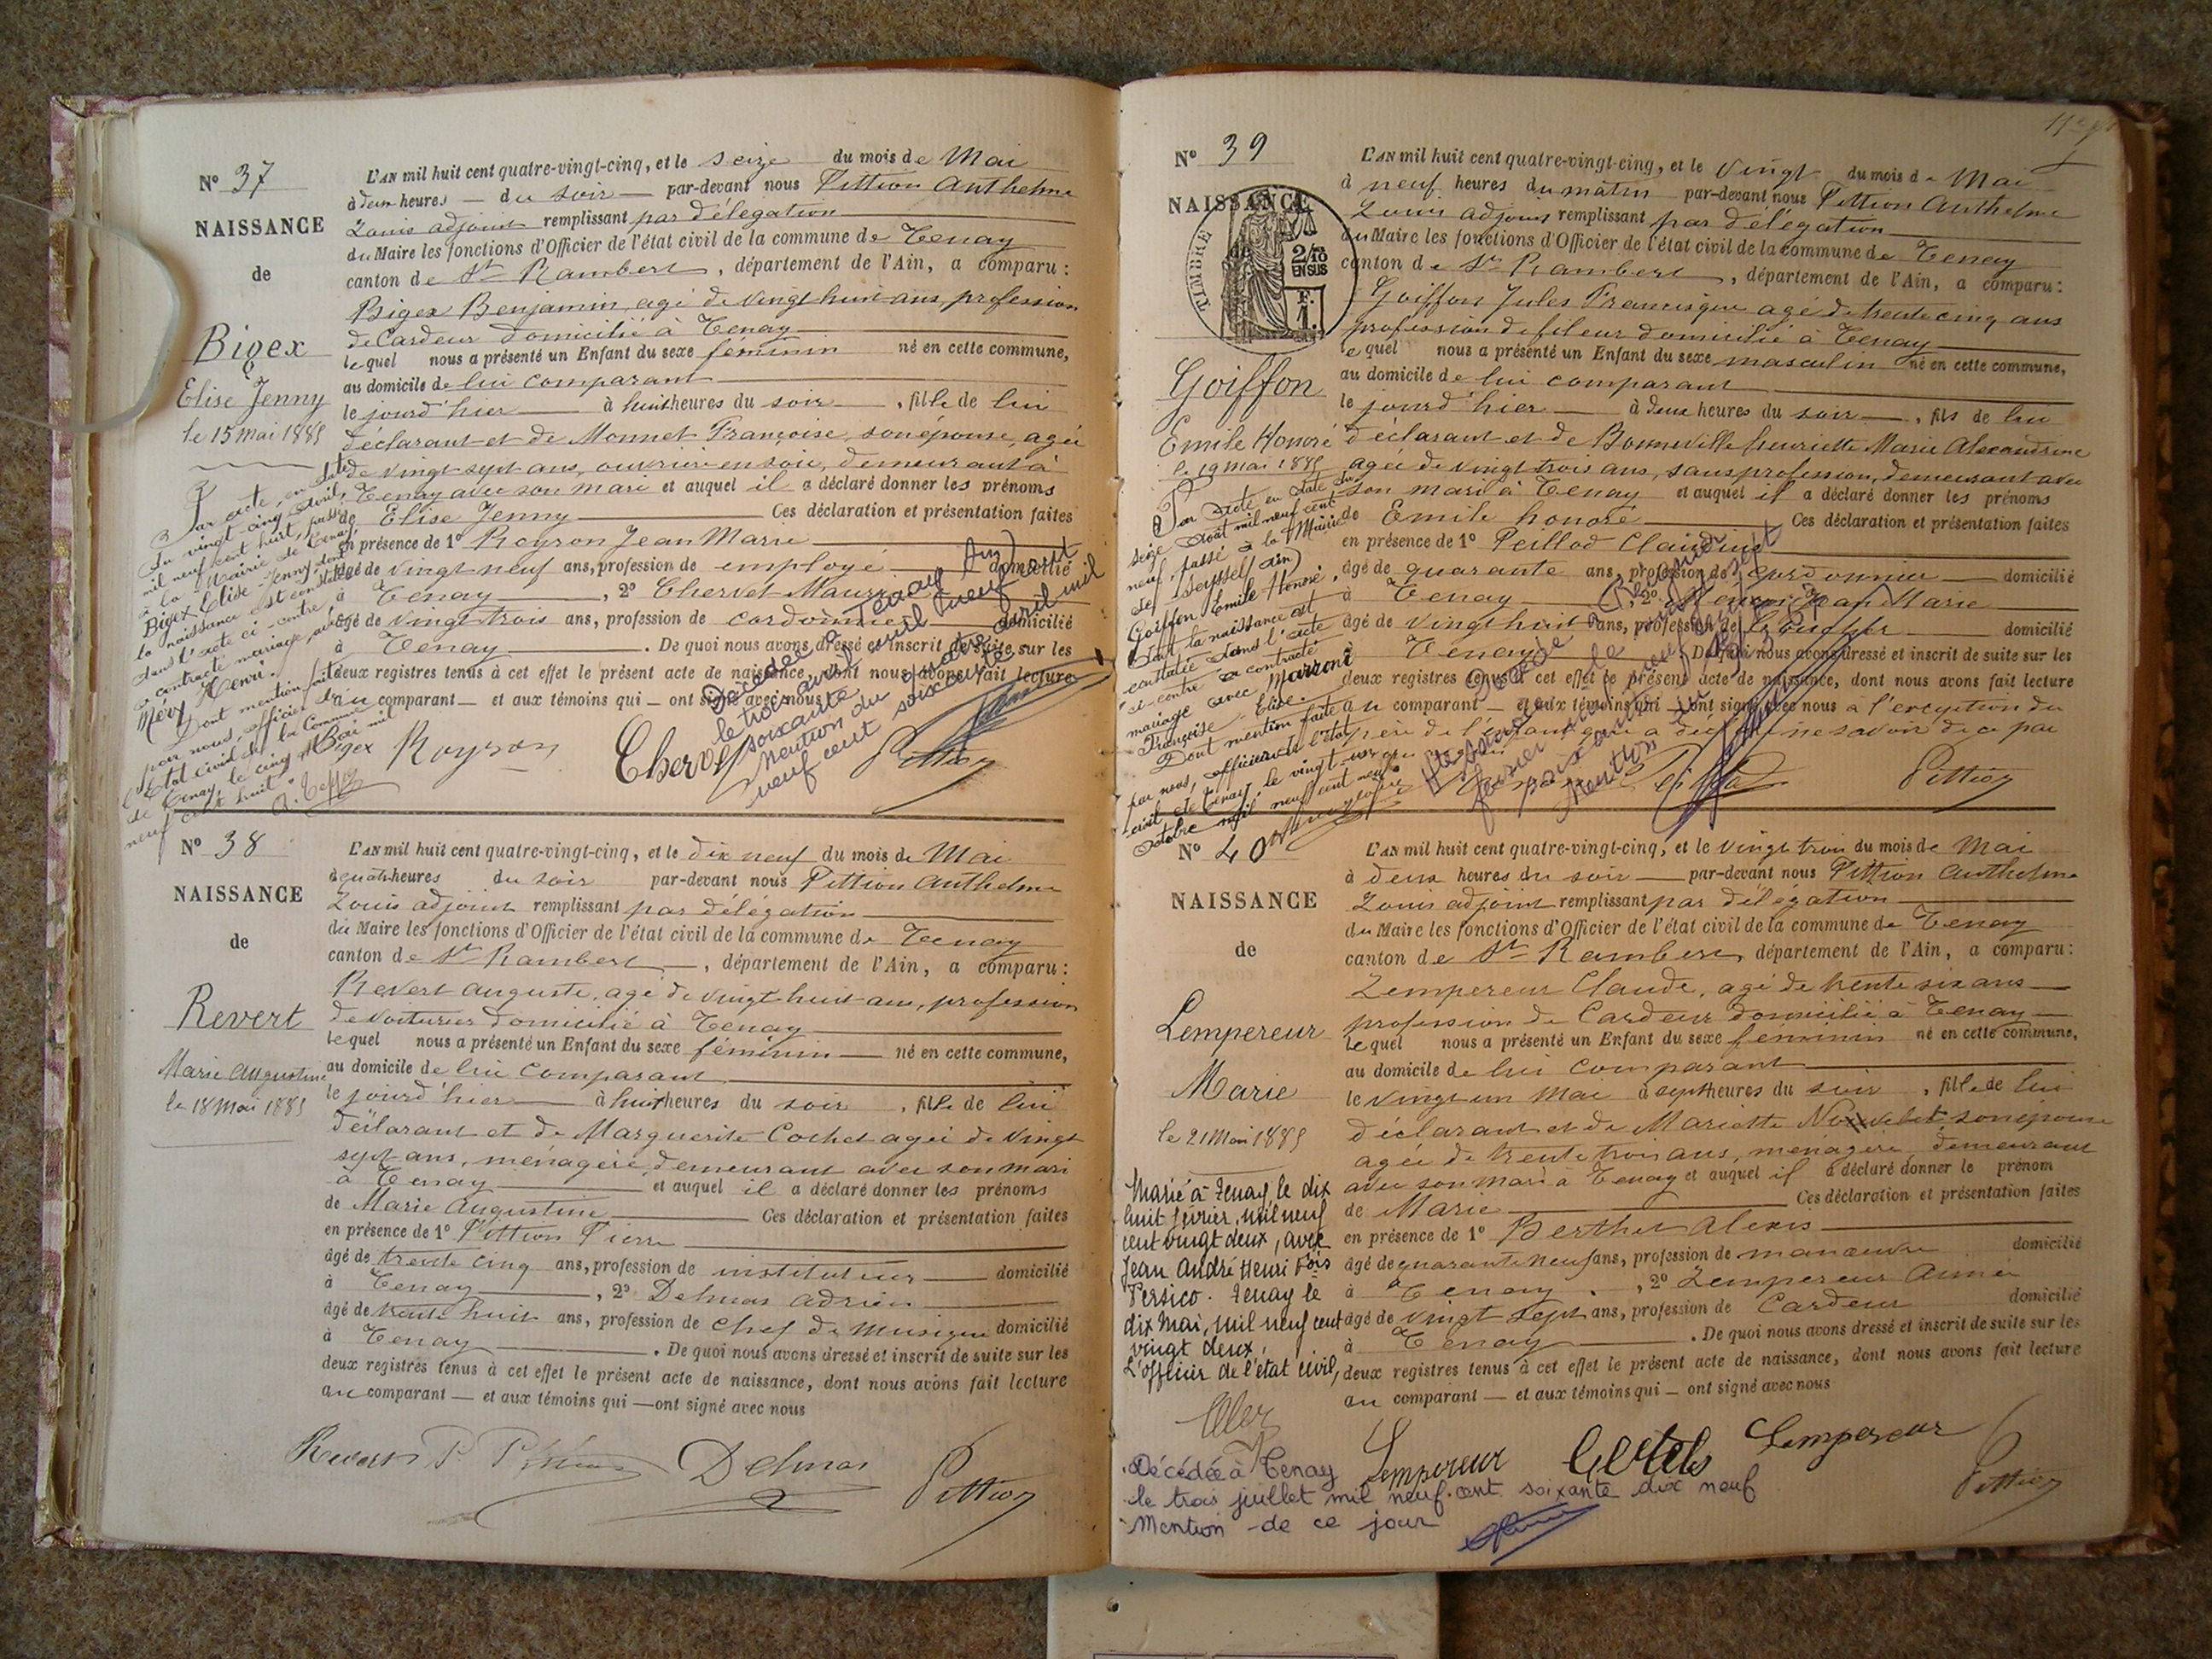 Nº 37
NAISSANCE
de
Bigex
Elise Jenny
le 15 mai 1885
L'AN mil huit cent quatre-vingt-cinq, et le seize du mois de Mai
à deux heures du soir par-devant nous Pittion Anthelme
Louis adjoint remplissant par délégation
du Maire les fonctions d'Officier de l'état civil de la commune de Tenay
canton de St Rambert, département de l'Ain, a comparu :
Bigex Benjamin, agé de vingt huit ans, profession
de Cardeur domicilié à Tenay
lequel nous a présenté un Enfant du sexe féminin né en cette commune,
au domicile de lui comparant
le jourd'hier à huit heures du soir, fille de lui
déclarant et de Monnet Françoise, son epouse, agée
de vingt sept ans, ouvrière en soie, demeurant à
Tenay avec son mari et auquel il a déclaré donner les prénoms
de Elise Jenny Ces déclaration et présentation faites
en présence de 1º Royson Jean Marie
âgé de vingt neuf ans, profession de employé domicilié
à Tenay, 2º Chervet
âgé de vingt trois ans, profession de cordonnier domicilié
à Tenay. De quoi nous avons dressé et inscrit de suite sur les
deux registres tenus à cet effet le présent acte de naissance, dont nous avons fait lecture
au comparant et aux témoins qui ont signé avec nous
Par acte, en date
du vingt-cinq avril
mil neuf cent huit, passé
à la Mairie de Tenay
Bigex Elise Jenny dont
la naissance est constatée
dans l'acte ci-contre
a contracté mariage avec
Méry Henri.
Dont mention faite
par nous, officier de
l'Etat civil de la Commune
de Tenay, le cinq Mai mil
neuf cent huit
Décédée à Tenay (Ain)
le trois avril mil neuf cent
soixante
Mention du quatre avril mil
neuf cent soixante
Bigex Royson Chervet Pittion
Nº 38
NAISSANCE
de
Revert
Marie Augustine
le 18 Mai 1885
L'AN mil huit cent quatre-vingt-cinq, et le dix neuf du mois de Mai
à quatre heures du soir par-devant nous Pittion Anthelme
Louis adjoint remplissant par délégation
du Maire les fonctions d'Officier de l'état civil de la commune de Tenay
canton de St Rambert, département de l'Ain, a comparu :
Revert Auguste, agé de vingt huit ans, profession
de Voiturier domicilié à Tenay
lequel nous a présenté un Enfant du sexe féminin né en cette commune,
au domicile de lui comparant
le jourd'hier à huit heures du soir, fille de lui
déclarant et de Marguerite Cochet agée de vingt
sept ans, ménagère, demeurant avec son mari
à Tenay et auquel il a déclaré donner les prénoms
de Marie Augustine Ces déclaration et présentation faites
en présence de 1º Pittion Pierre
âgé de trente cinq ans, profession de instituteur domicilié
à Tenay, 2º Delmas Adrien
âgé de trente huit ans, profession de Chef de Musique domicilié
à Tenay. De quoi nous avons dressé et inscrit de suite sur les
deux registres tenus à cet effet le présent acte de naissance, dont nous avons fait lecture
au comparant et aux témoins qui ont signé avec nous
Revert P. Pittion Delmas Pittion
Nº 39
NAISSANCE
de
TIMBRE
2/10
EN SUS
F.
1.
Goiffon
Emile Honoré
le 19 mai 1885
L'AN mil huit cent quatre-vingt-cinq, et le vingt du mois de Mai
à neuf heures du matin par-devant nous Pittion Anthelme
Louis adjoint remplissant par délégation
du Maire les fonctions d'Officier de l'état civil de la commune de Tenay
canton de St Rambert, département de l'Ain, a comparu :
Goiffon Jules Francisque agé de trente cinq ans
profession de fileur domicilié à Tenay
lequel nous a présenté un Enfant du sexe masculin né en cette commune,
au domicile de lui comparant
le jourd'hier à deux heures du soir, fils de lui
déclarant et de Bonneville henriette Marie Alexandrine
agée de vingt trois ans, sans profession, demeurant avec
son mari à Tenay et auquel il a déclaré donner les prénoms
de Emile honoré Ces déclaration et présentation faites
en présence de 1º Peillod Claudius
âgé de quarante ans, profession de cordonnier domicilié
à Tenay, 2º Jean Marie
âgé de vingt huit ans, profession de domicilié
à Tenay. De quoi nous avons dressé et inscrit de suite sur les
deux registres tenus à cet effet le présent acte de naissance, dont nous avons fait lecture
au comparant et aux témoins qui ont signé avec nous à l'exception du
père de l'enfant qui a déclaré ne savoir de ce par
Par acte en date du
seize Août mil neuf cent
neuf, passé à la Mairie
de Seyssel (Ain)
Goiffon Emile Honoré,
dont la naissance est
constatée dans l'acte
ci contre a contracté
mariage avec Marrone
Françoise Elise.
Dont mention faite
par nous, officier de l'état
civil de Tenay, le vingt-un
octobre mil neuf cent neuf
Pittion
Nº 40
NAISSANCE
de
Lempereur
Marie
le 21 Mai 1885
L'AN mil huit cent quatre-vingt-cinq, et le vingt trois du mois de Mai
à deux heures du soir par-devant nous Pittion Anthelme
Louis adjoint remplissant par délégation
du Maire les fonctions d'Officier de l'état civil de la commune de Tenay
canton de St Rambert, département de l'Ain, a comparu :
Lempereur Claude, agé de trente six ans
profession de Cardeur domicilié à Tenay
lequel nous a présenté un Enfant du sexe féminin né en cette commune,
au domicile de lui comparant
le vingt un Mai à sept heures du soir, fille de lui
déclarant et de Mariette son épouse
agée de trente trois ans, ménagère, demeurant
avec son mari à Tenay et auquel il a déclaré donner le prénom
de Marie Ces déclaration et présentation faites
en présence de 1º Berthet Alexis
âgé de quarante neuf ans, profession de manœuvre domicilié
à Tenay, 2º Lempereur Aimé
âgé de vingt sept ans, profession de Cardeur domicilié
à Tenay. De quoi nous avons dressé et inscrit de suite sur les
deux registres tenus à cet effet le présent acte de naissance, dont nous avons fait lecture
au comparant et aux témoins qui ont signé avec nous
Marié à Tenay, le dix
huit février, mil neuf
cent vingt deux, avec
Jean André Henri Fois
Persico. Tenay le
dix Mai, mil neuf cent
vingt deux,
L'officier de l'état civil,
Lempereur Lempereur Pittion
Décédée à Tenay
le trois juillet mil neuf cent soixante dix neuf
Mention de ce jour